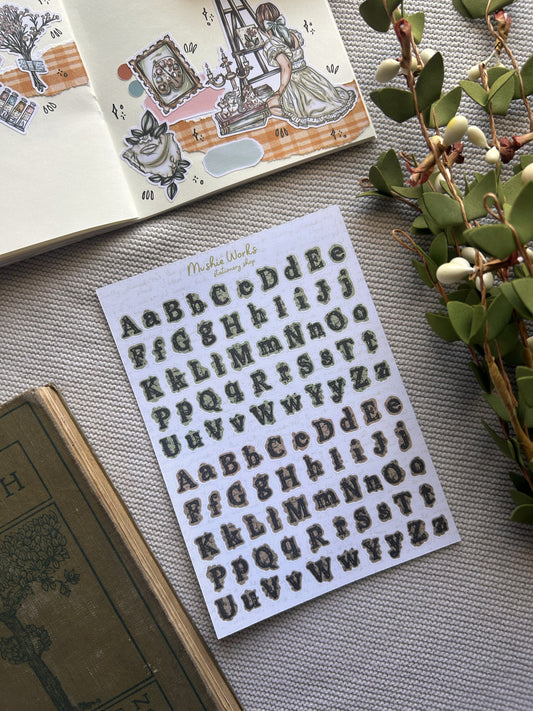 Mushie Works
stationery shop
Aa Bb Cc Dd Ee
Ff Gg Hh Ii Jj
Kk Ll Mm Nn Oo
Pp Qq Rr Ss Tt
Uu Vv Ww Yy Zz
Aa Bb Cc Dd Ee
Ff Gg Hh Ii Jj
Kk Ll Mm Nn Oo
Pp Qq Rr Ss Tt
Uu Vv Ww Yy Zz
H
EN